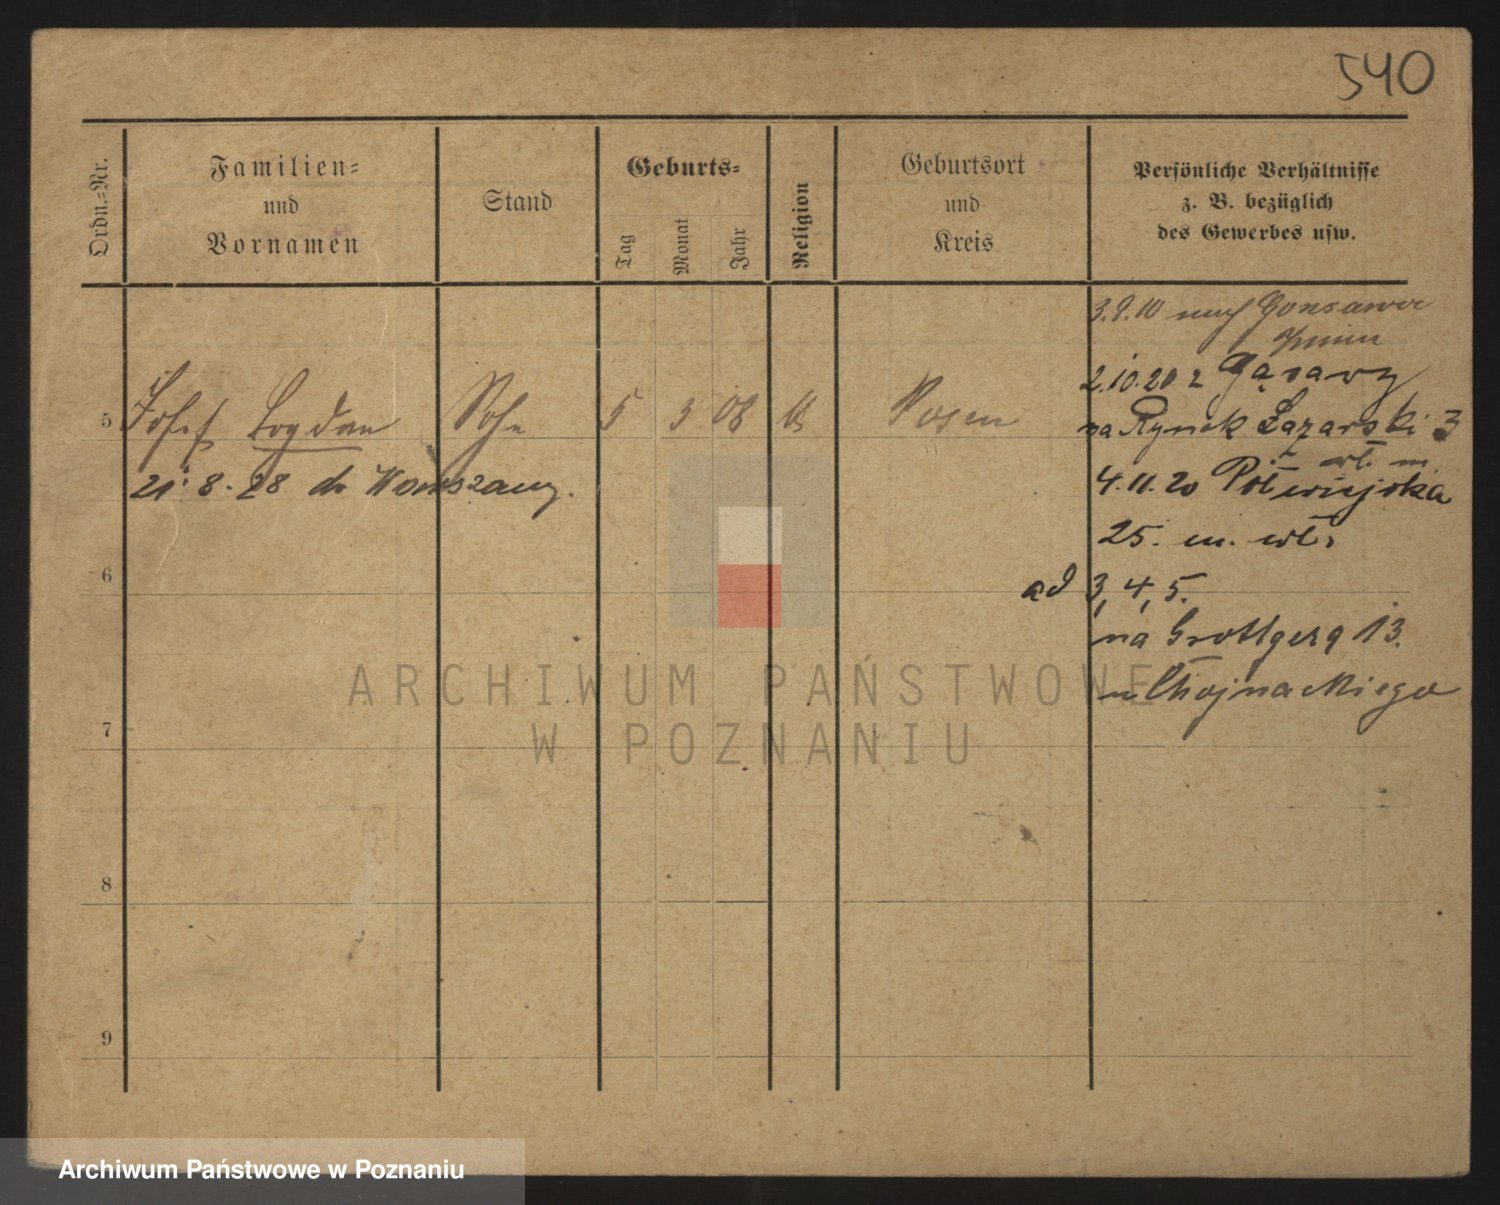 540
Ordn.=Nr.
Familien=
und
Vornamen
Stand
Geburts=
Tag
Monat
Jahr
Religion
Geburtsort
und
Kreis
Persönliche Verhältnisse
z. B. bezüglich
des Gewerbes usw.
3.9.10 nach Gonsawa
Znin
2.10.20 z Gąsawy
5 Josef Bogdan Sohn 5 3 08 k Posen
na Rynek Łazarski 3
wł. m.
21.8.28 do Warszawy.
4.11.20 Półwiejska
25. m. wł.
6
ad 3, 4, 5.
na Grottgera 13.
m Chojnackiego
7
8
9
ARCHIWUM PAŃSTWOWE
W POZNANIU
Archiwum Państwowe w Poznaniu